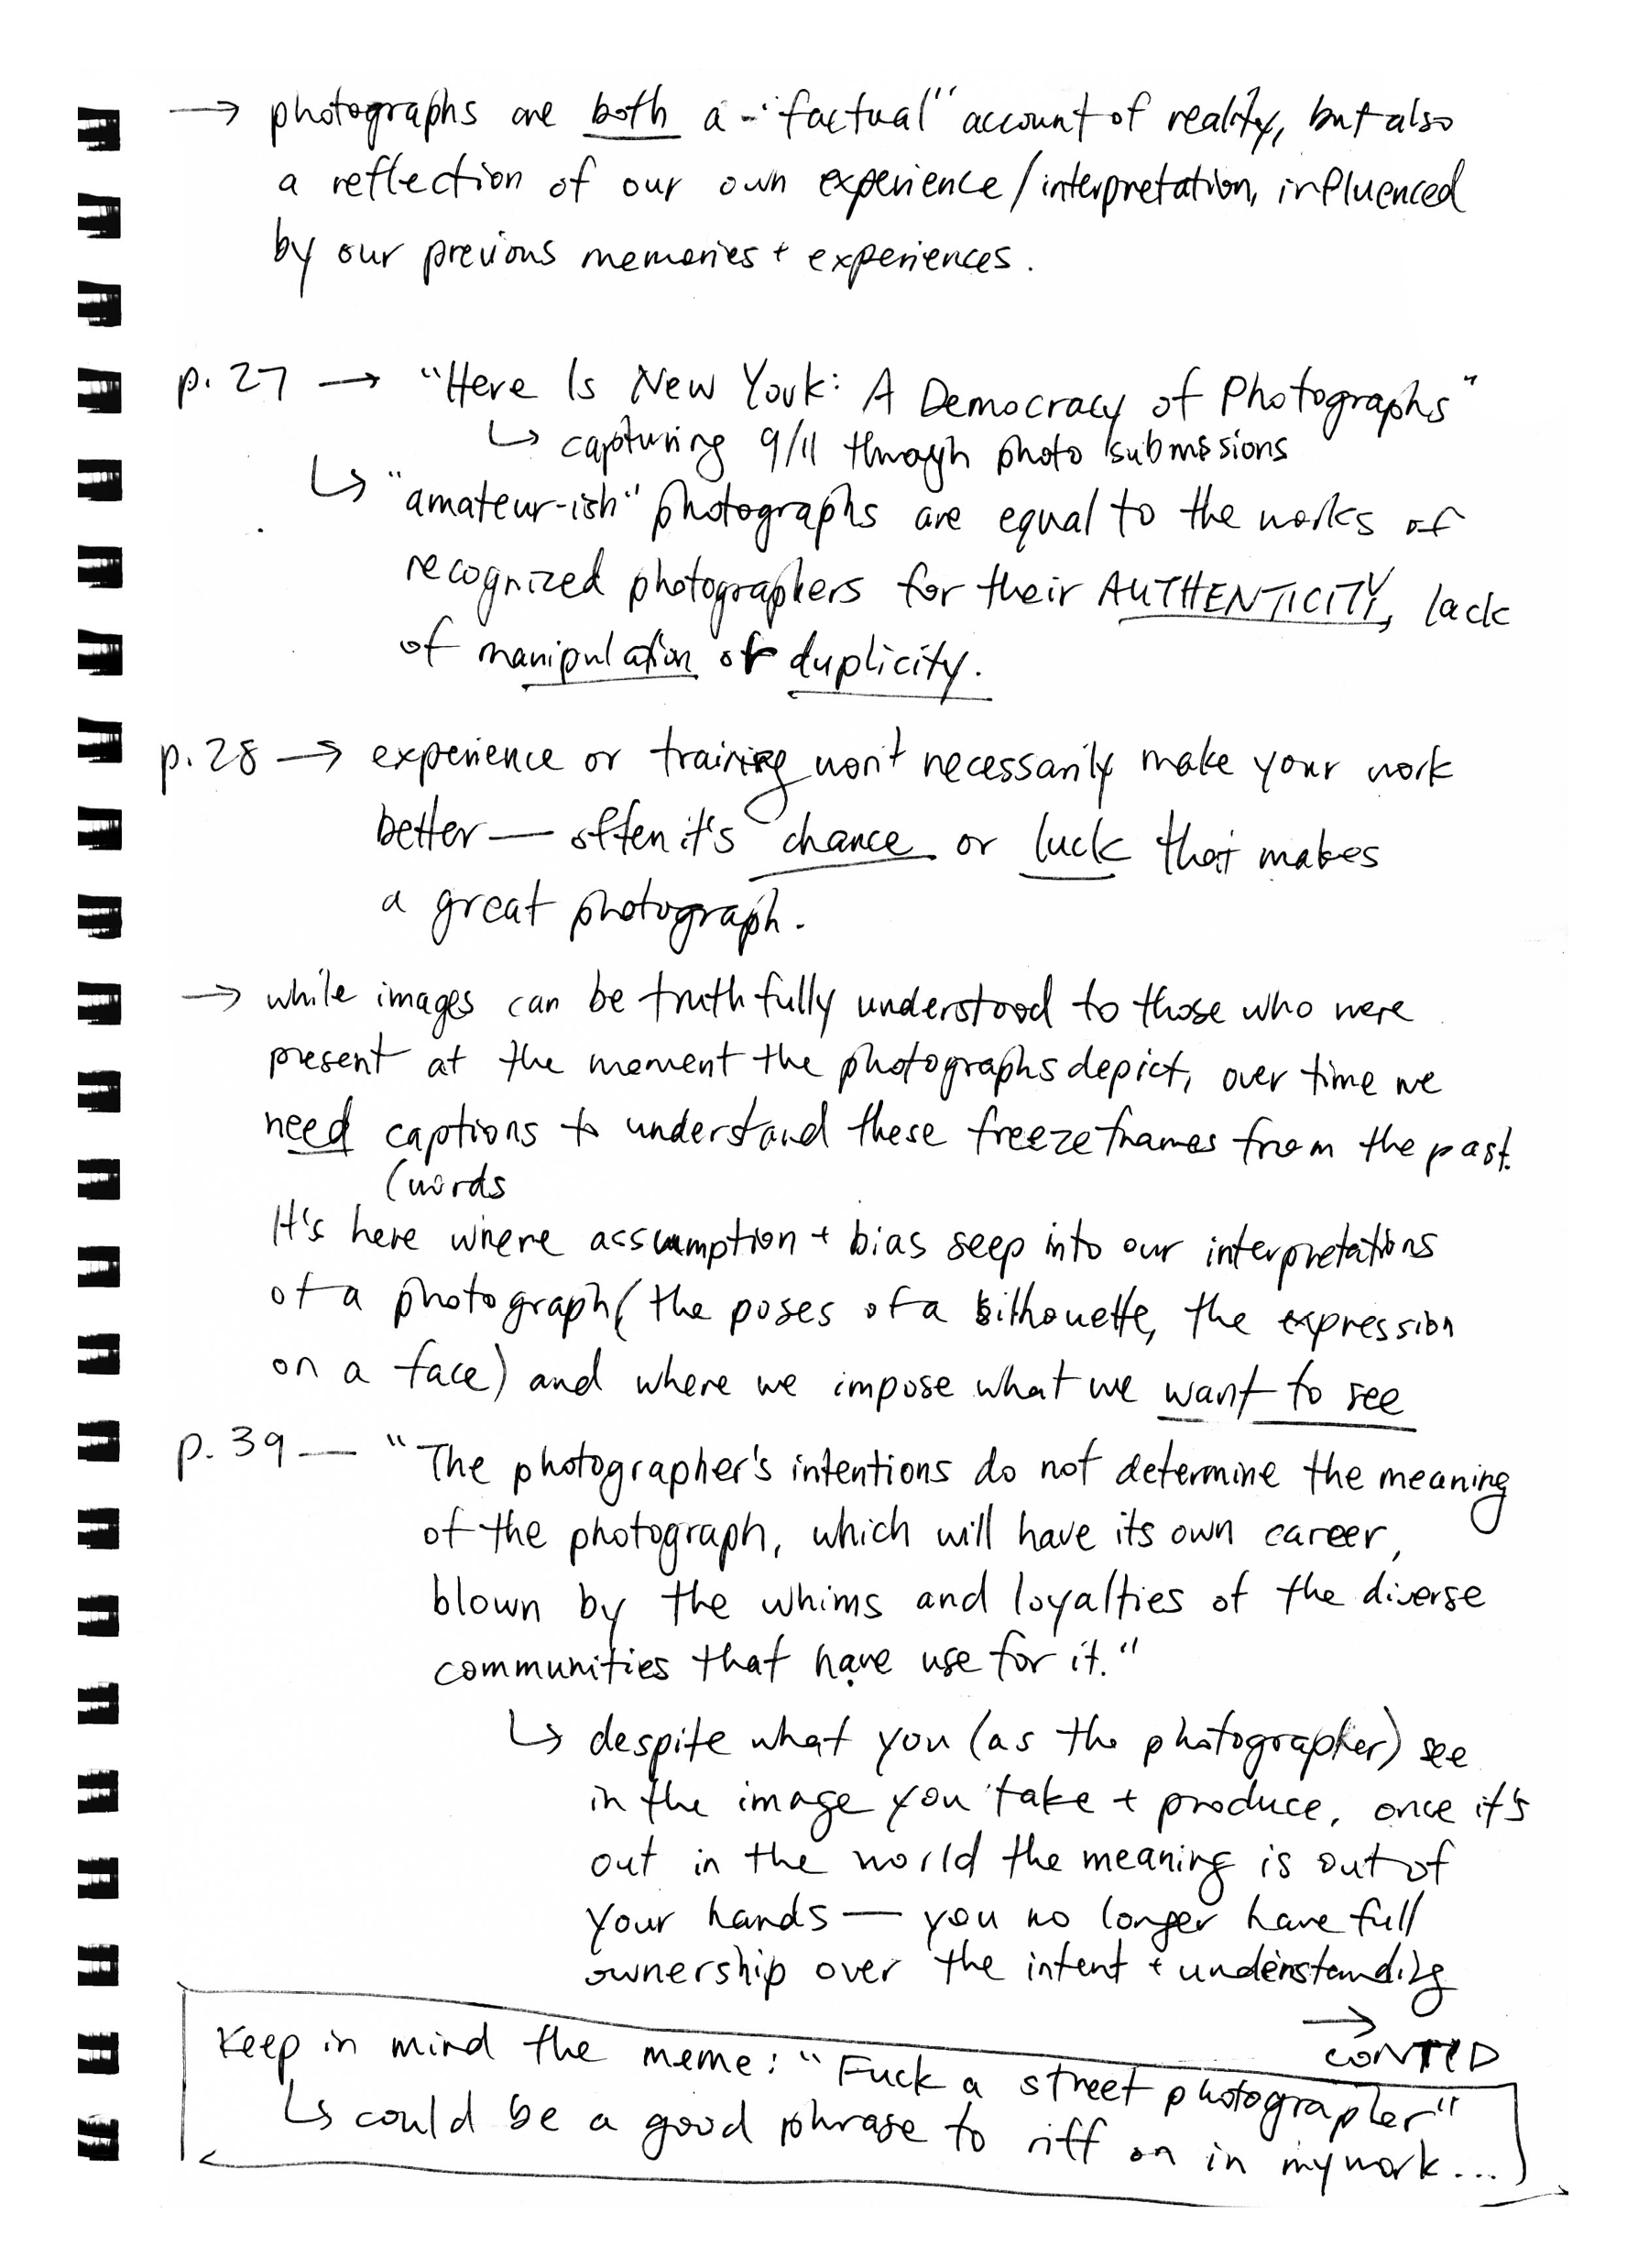 → photographs are both a "factual" account of reality, but also
a reflection of our own experience/interpretation, influenced
by our previous memories + experiences.
p. 27 → "Here Is New York: A Democracy of Photographs"
↳ capturing 9/11 through photo submissions
↳ "amateur-ish" photographs are equal to the works of
recognized photographers for their AUTHENTICITY, lack
of manipulation or duplicity.
p. 28 → experience or training won't necessarily make your work
better — often it's chance or luck that makes
a great photograph.
→ while images can be truthfully understood to those who were
present at the moment the photographs depict, over time we
need captions to understand these freeze frames from the past.
(words
It's here where assumption + bias seep into our interpretations
of a photograph (the poses of a silhouette, the expression
on a face) and where we impose what we want to see
p. 39 — "The photographer's intentions do not determine the meaning
of the photograph, which will have its own career,
blown by the whims and loyalties of the diverse
communities that have use for it."
↳ despite what you (as the photographer) see
in the image you take + produce, once it's
out in the world the meaning is out of
your hands — you no longer have full
ownership over the intent + understanding
→
CONT'D
Keep in mind the meme: "Fuck a street photographer"
↳ could be a good phrase to riff on in my work...